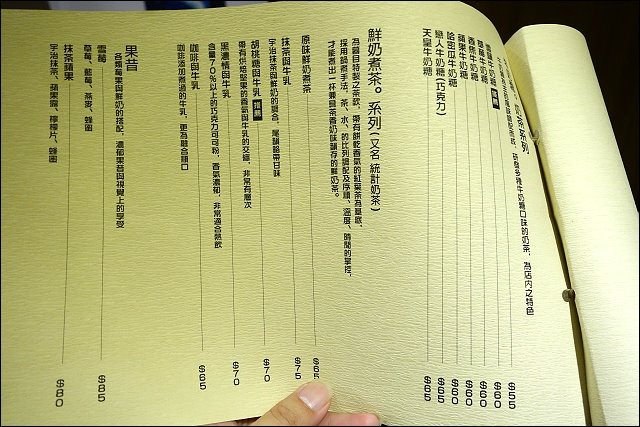 奶茶系列
研磨多種牛奶糖口味的奶茶，為店內之特色
$55
牛奶糖 推薦 $60
草莓牛奶糖 $60
香蕉牛奶糖 $60
蘋果牛奶糖 $60
哈密瓜牛奶糖 $60
戀人牛奶糖(巧克力) $65
天皇牛奶糖 $65
鮮奶煮茶。系列(又名 統計奶茶)
為醒目特製之茶款，帶有餅乾香氣的紅葉茶為基底，
採用鍋煮手法，茶、水、的比列調配及序順、溫度、時間的掌控，
才能煮出一杯兼具茶香奶味韻存的鮮奶茶。
原味鮮奶煮茶 $65
抹茶與牛乳 $75
宇治抹茶與鮮奶的契合，尾韻略帶甘味
胡桃糖與牛乳 推薦 $70
帶有烘焙堅果的香氣與牛乳的交織，非常有層次
黑濃情與牛乳 $70
含量70%以上的巧克力可可粉，香氣濃郁，非常適合熱飲
咖啡與牛乳 $65
咖啡添加煮過的牛乳，更為融合順口
果昔
各類莓果與鮮奶的搭配，濃郁果昔與視覺上的享受
雪莓 $85
草莓、藍莓、燕麥、蜂蜜
抹茶蘋果 $80
宇治抹茶、蘋果露、檸檬片、蜂蜜